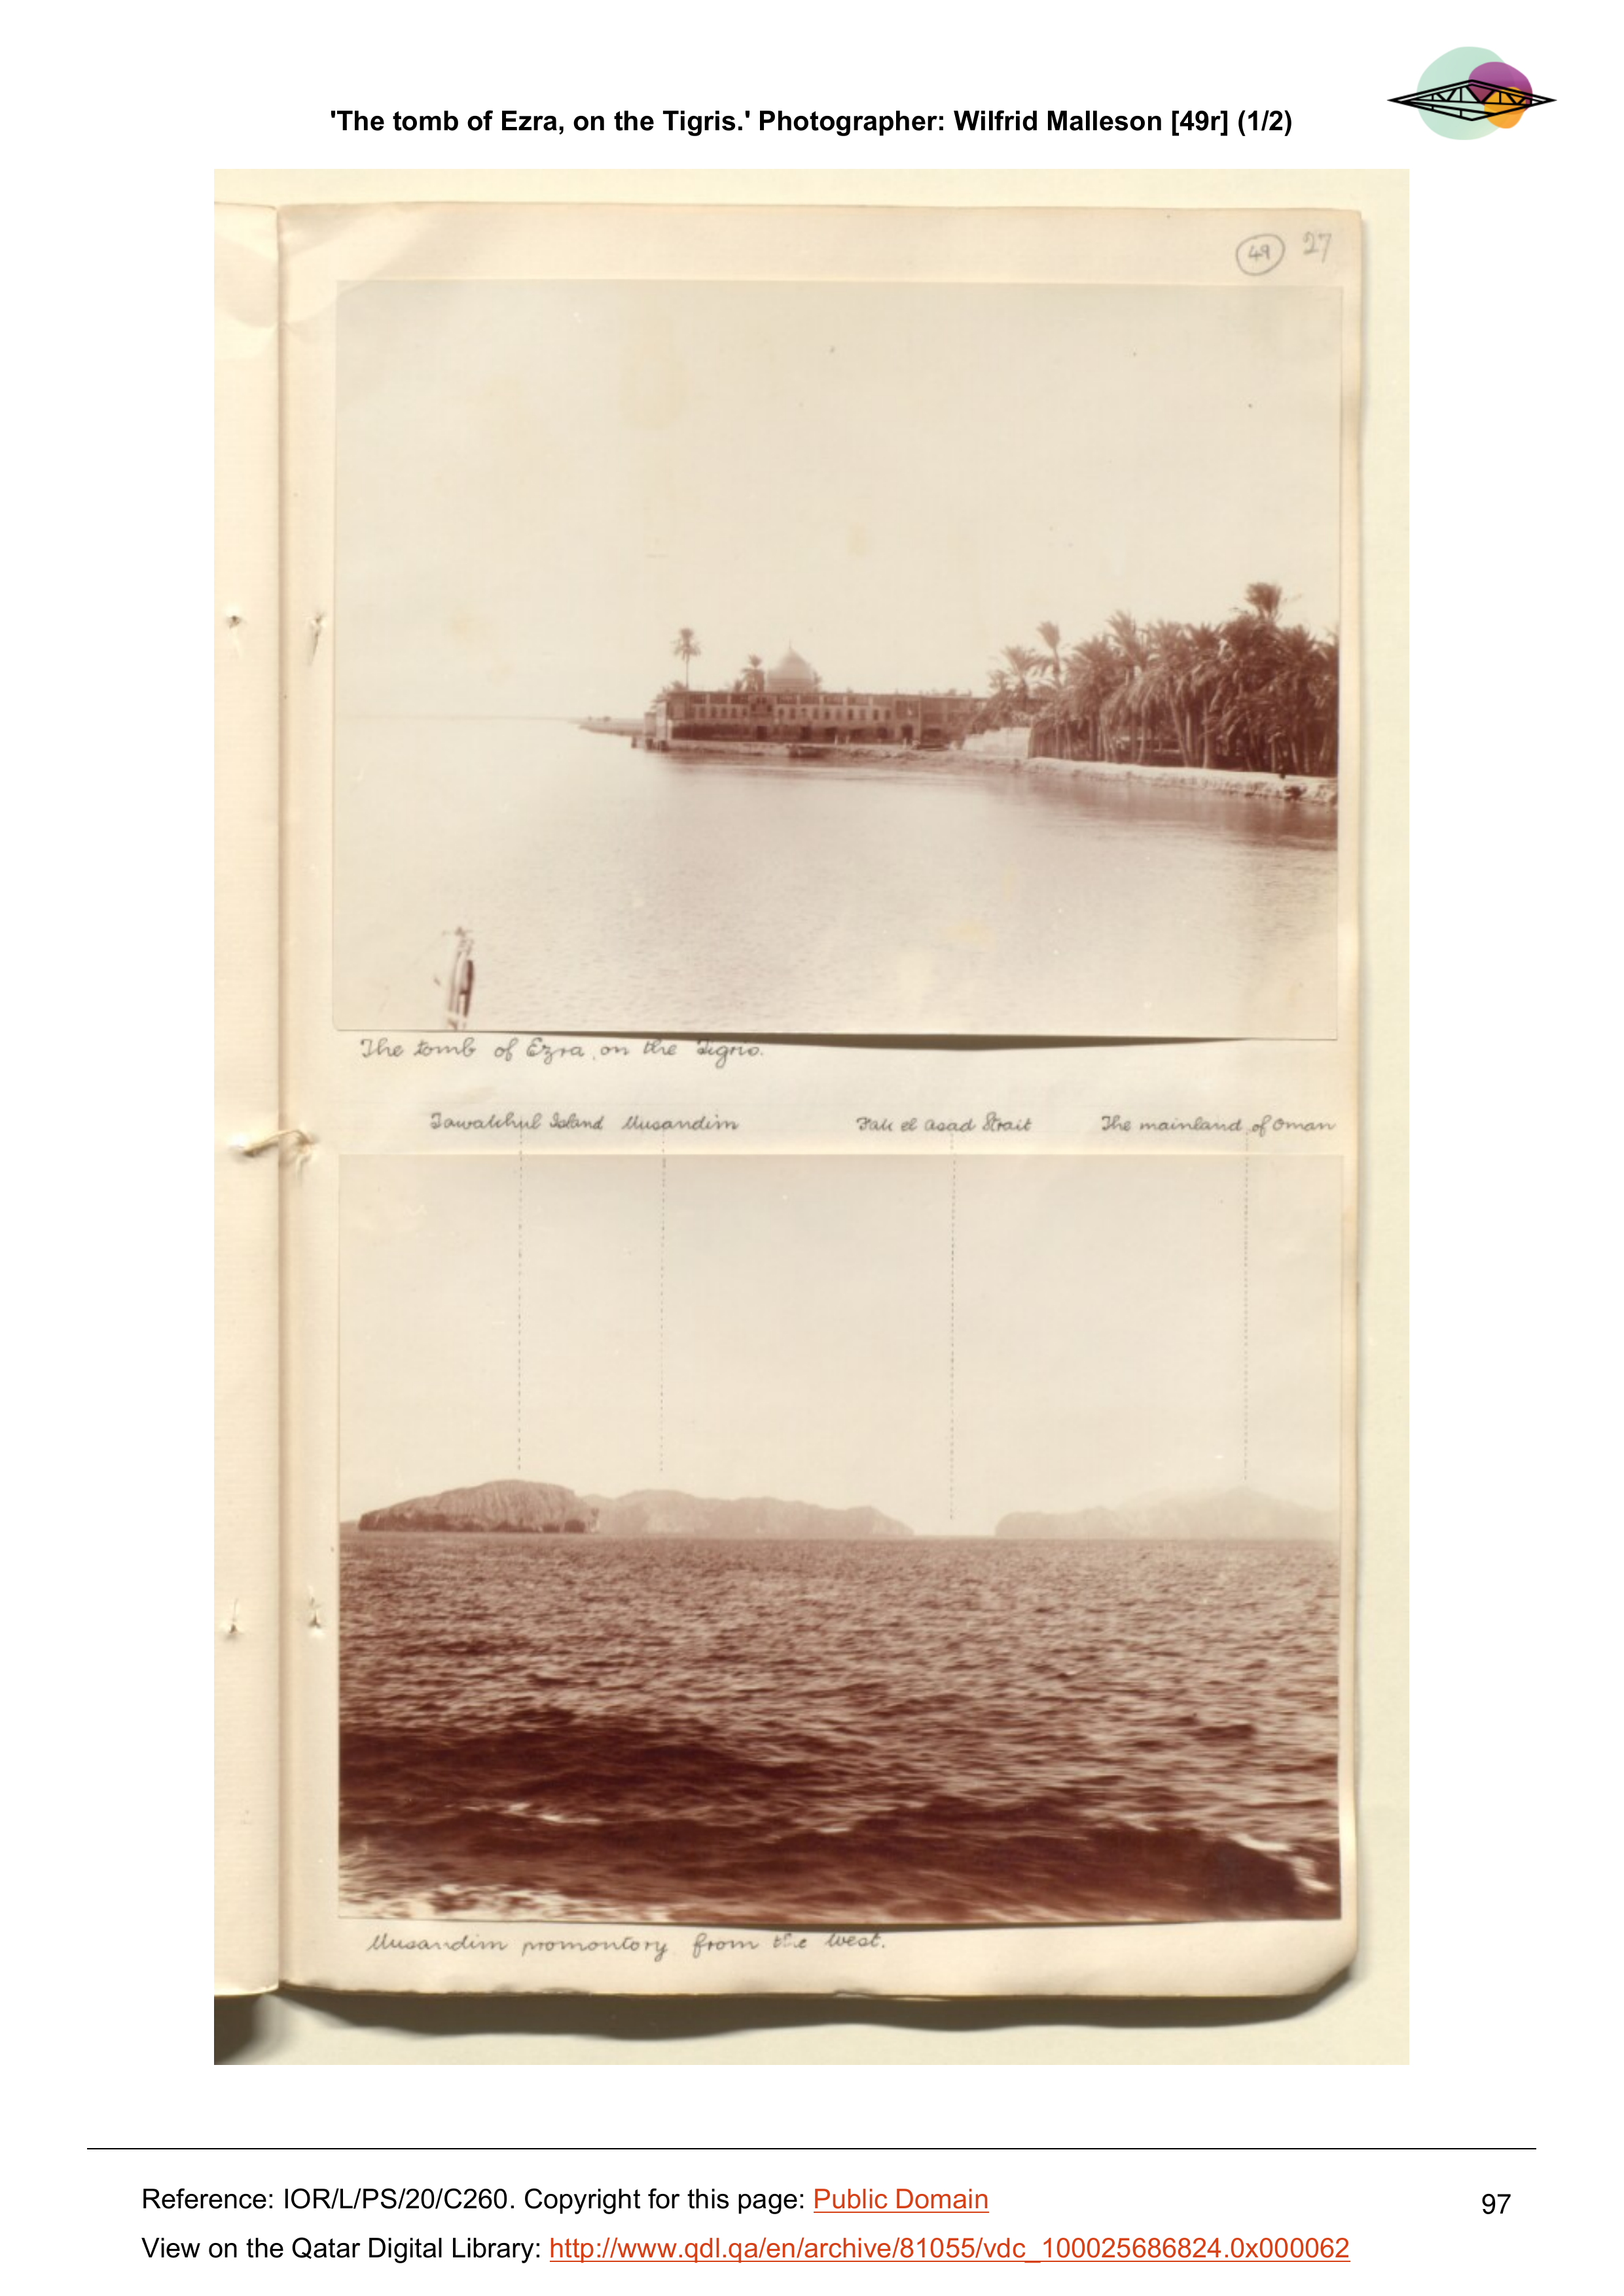 'The tomb of Ezra, on the Tigris.' Photographer: Wilfrid Malleson [49r] (1/2)
49 27
The tomb of Ezra, on the Tigris.
Tawakhul Island Musandim Fak el Asad Strait The mainland of Oman
Musandim promontory from the West.
Reference: IOR/L/PS/20/C260. Copyright for this page: Public Domain
97
View on the Qatar Digital Library: http://www.qdl.qa/en/archive/81055/vdc_100025686824.0x000062